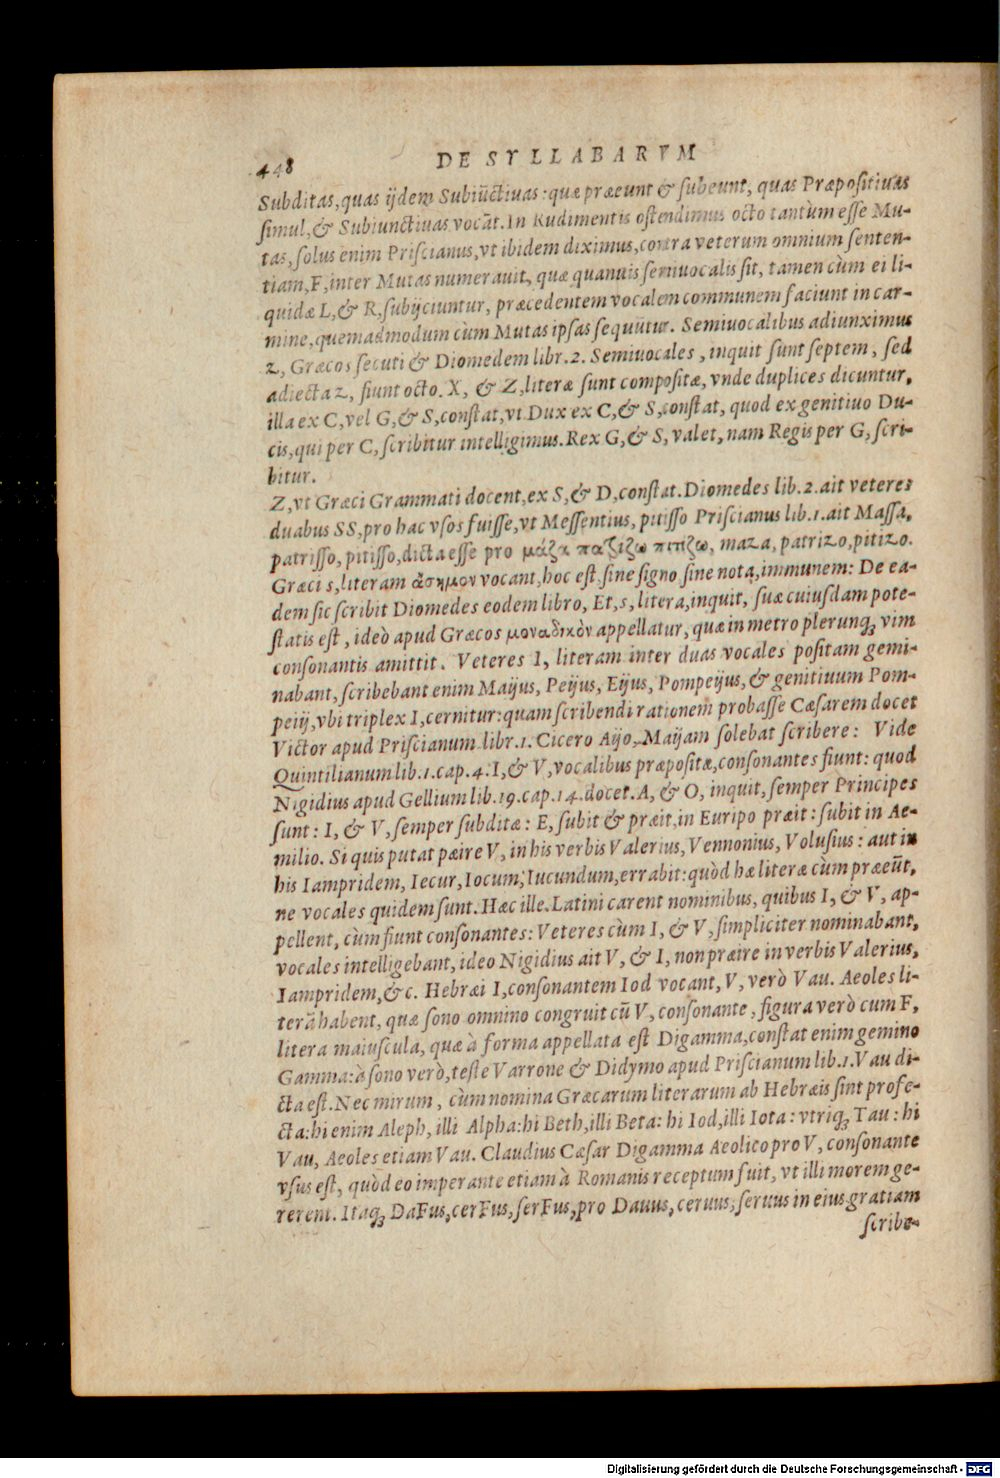 448 DE SYLLABARVM
Subditas, quas ijdem Subiũctiuas: quæ præeunt & subeunt, quas Præpositiuas
simul, & Subiunctiuas vocãt. In Rudimentis ostendimus octo tantùm esse Mu-
tas, solus enim Priscianus, vt ibidem diximus, contra veterum omnium senten-
tiam, F, inter Mutas numerauit, quæ quanuis semiuocalis sit, tamen cùm ei li-
quidæ L, & R, subijciuntur, præcedentem vocalem communem faciunt in car-
mine, quemadmodum cùm Mutas ipsas sequũtur. Semiuocalibus adiunximus
z, Græcos secuti & Diomedem libr. 2. Semiuocales, inquit sunt septem, sed
adiecta z, fiunt octo. X, & Z, literæ sunt compositæ, vnde duplices dicuntur,
illa ex C, vel G, & S, constat, vt Dux ex C, & S, constat, quod ex genitiuo Du-
cis, qui per C, scribitur intelligimus. Rex G, & S, valet, nam Regis per G, scri-
bitur.
Z, vt Græci Grammati docent, ex S, & D, constat. Diomedes lib. 2. ait veteres
duabus SS, pro hac vsos fuisse, vt Messentius, pitisso Priscianus lib. 1. ait Massa,
patrisso, pitisso, dicta esse pro μάζα παζίζω πιτίζω, maza, patrizo, pitizo.
Græci s, literam ἄσημον vocant, hoc est, sine signo sine nota, immunem: De ea-
dem sic scribit Diomedes eodem libro, Et, s, litera, inquit, suæ cuiusdam pote-
statis est, ideò apud Græcos μοναδικὸν appellatur, quæ in metro plerunqꝫ vim
consonantis amittit. Veteres I, literam inter duas vocales positam gemi-
nabant, scribebant enim Maijus, Peijus, Eijus, Pompeijus, & genitiuum Pom-
peiij, vbi triplex I, cernitur: quam scribendi rationem probasse Cæsarem docet
Victor apud Priscianum libr. 1. Cicero Aijo, Maijam solebat scribere: Vide
Quintilianum lib. 1. cap. 4. I, & V, vocalibus præpositæ, consonantes fiunt: quod
Nigidius apud Gellium lib. 19. cap. 14. docet. A, & O, inquit, semper Principes
sunt: I, & V, semper subditæ: E, subit & præit, in Euripo præit: subit in Ae-
milio. Si quis putat pæire V, in his verbis Valerius, Vennonius, Volusius: aut in
his Iampridem, Iecur, Iocum, Iucundum, errabit: quòd hæ literæ cùm præeũt,
ne vocales quidem sunt. Hæc ille. Latini carent nominibus, quibus I, & V, ap-
pellent, cùm fiunt consonantes: Veteres cùm I, & V, simpliciter nominabant,
vocales intelligebant, ideo Nigidius ait V, & I, non præire in verbis Valerius,
Iampridem, &c. Hebræi I, consonantem Iod vocant, V, verò Vau. Aeoles li-
terã habent, quæ sono omnino congruit cũ V, consonante, figura verò cum F,
litera maiuscula, quæ à forma appellata est Digamma, constat enim gemino
Gamma: à sono verò, teste Varrone & Didymo apud Priscianum lib. 1. Vau di-
cta est. Nec mirum, cùm nomina Græcarum literarum ab Hebræis sint profe-
cta: hi enim Aleph, illi Alpha: hi Beth, illi Beta: hi Iod, illi Iota: vtriqꝫ Tau: hi
Vau, Aeoles etiam Vau. Claudius Cæsar Digamma Aeolico pro V, consonante
vsus est, quòd eo imperante etiam à Romanis receptum fuit, vt illi morem ge-
rerent. Itaqꝫ DaFus, cerFus, serFus, pro Dauus, ceruus, seruus in eius gratiam
scribe-
Digitalisierung gefördert durch die Deutsche Forschungsgemeinschaft - DFG